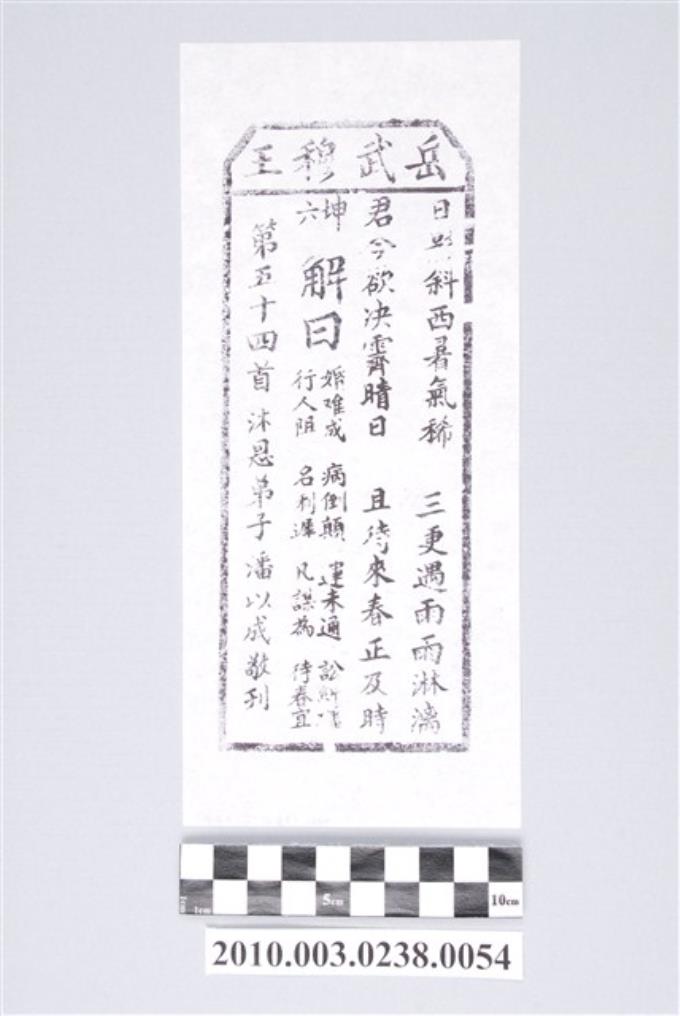 岳武穆王
日斜西暑氣稀 三更遇雨雨淋漓
君今欲決霽晴日 且待來春正及時
坤六 解曰
婚难成 病倒顛 運未通 訟
行人阻 名利遲 凡謀為 待春宜
第五十四首 沐恩弟子潘以成敬刊
1cm 5cm 10cm
2010.003.0238.0054